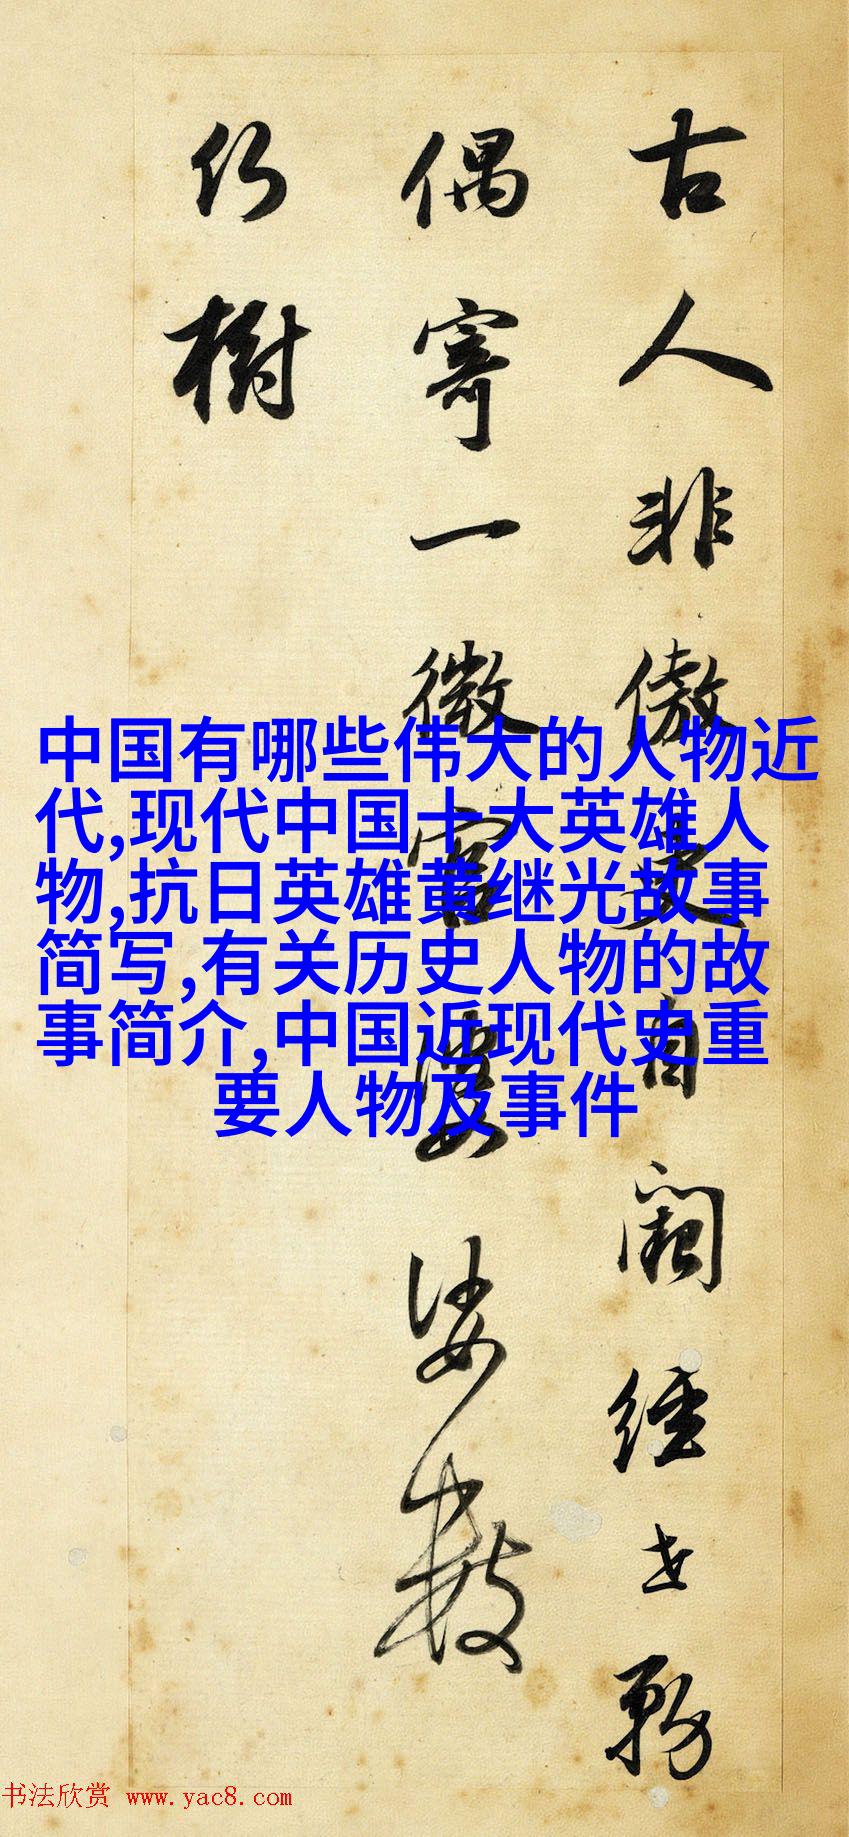 古人非傲吏自闕經世務
偶寄一微官婆娑數
樹
中国有哪些伟大的人物近
代,现代中国十大英雄人
物,抗日英雄黄继光故事
简写,有关历史人物的故
事简介,中国近现代史重
要人物及事件
书法欣赏 www.yac8.com